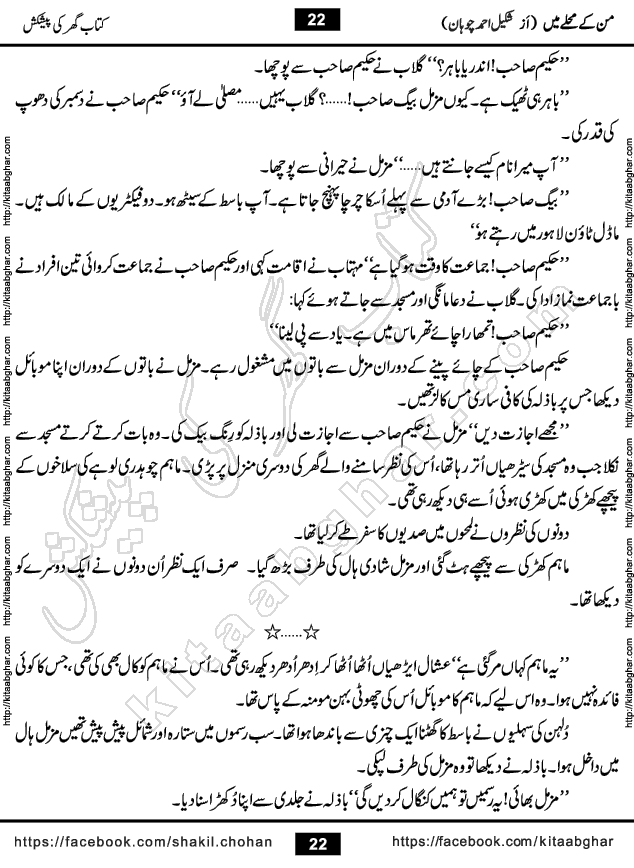 من کے محلے میں (از شکیل احمد چوہان)
22
کتاب گھر کی پیشکش
’’حکیم صاحب! اندر یا باہر؟‘‘ گلاب نے حکیم صاحب سے پوچھا۔
’’باہر ہی ٹھیک ہے۔ کیوں مزمل بیگ صاحب!......؟ گلاب یہیں...... مصلیٰ لے آؤ‘‘ حکیم صاحب نے دسمبر کی دھوپ
کی قدر کی۔
’’آپ میرا نام کیسے جانتے ہیں......‘‘ مزمل نے حیرانی سے پوچھا۔
’’بیگ صاحب! بڑے آدمی سے پہلے اُسکا چرچا پہنچ جاتا ہے۔ آپ باسط کے سیٹھ ہو۔ دو فیکٹریوں کے مالک ہیں۔
ماڈل ٹاؤن لاہور میں رہتے ہو‘‘
’’حکیم صاحب! جماعت کا وقت ہو گیا ہے‘‘ مہتاب نے اقامت کہی اور حکیم صاحب نے جماعت کروائی تین افراد نے
باجماعت نماز ادا کی۔ گلاب نے دعا مانگی اور مسجد سے جاتے ہوئے کہا:
’’حکیم صاحب! تمھارا چائے تھرماس میں ہے۔ یاد سے پی لینا‘‘
حکیم صاحب کے چائے پینے کے دوران مزمل سے باتوں میں مشغول رہے۔ مزمل نے باتوں کے دوران اپنا موبائل
دیکھا جس پر باذلہ کی کافی ساری مس کالز تھیں۔
’’مجھے اجازت دیں‘‘ مزمل نے حکیم صاحب سے اجازت لی اور باذلہ کو رِنگ بیک کی۔ وہ بات کرتے کرتے مسجد سے
نکلا جب وہ مسجد کی سیڑھیاں اُتر رہا تھا، اُس کی نظر سامنے والے گھر کی دوسری منزل پر پڑی۔ ماہم چوہدری لوہے کی سلاخوں کے
پیچھے کھڑکی میں کھڑی ہوئی اُسے ہی دیکھ رہی تھی۔
دونوں کی نظروں نے لمحوں میں صدیوں کا سفر طے کر لیا تھا۔
ماہم کھڑکی سے پیچھے ہٹ گئی اور مزمل شادی ہال کی طرف بڑھ گیا۔ صرف ایک نظر اُن دونوں نے ایک دوسرے کو
دیکھا تھا۔
☆......☆
’’یہ ماہم کہاں مر گئی ہے‘‘ عشال ایڑھیاں اُٹھا اُٹھا کر اِدھر اُدھر دیکھ رہی تھی۔ اُس نے ماہم کو کال بھی کی تھی، جس کا کوئی
فائدہ نہیں ہوا۔ وہ اس لیے کہ ماہم کا موبائل اُس کی چھوٹی بہن مومنہ کے پاس تھا۔
دُلہن کی سہلیوں نے باسط کا گھٹنا ایک چنزی سے باندھا ہوا تھا۔ سب رسموں میں ستارہ اور شمائل پیش پیش تھیں مزمل ہال
میں داخل ہوا۔ باذلہ نے دیکھا تو وہ مزمل کی طرف لپکی۔
’’مزمل بھائی! یہ رسمیں تو ہمیں کنگال کر دیں گی‘‘ باذلہ نے جلدی سے اپنا دُکھڑا سنا دیا۔
http://kitaabghar.com http://kitaabghar.com http://kitaabghar.com http://kitaabghar.com http://kitaabghar.com http://kitaabghar.com
http://kitaabghar.com http://kitaabghar.com http://kitaabghar.com http://kitaabghar.com http://kitaabghar.com http://kitaabghar.com
کتاب گھر کی پیشکش
kitaabghar.com
https://facebook.com/shakil.chohan
22
https://facebook.com/kitaabghar